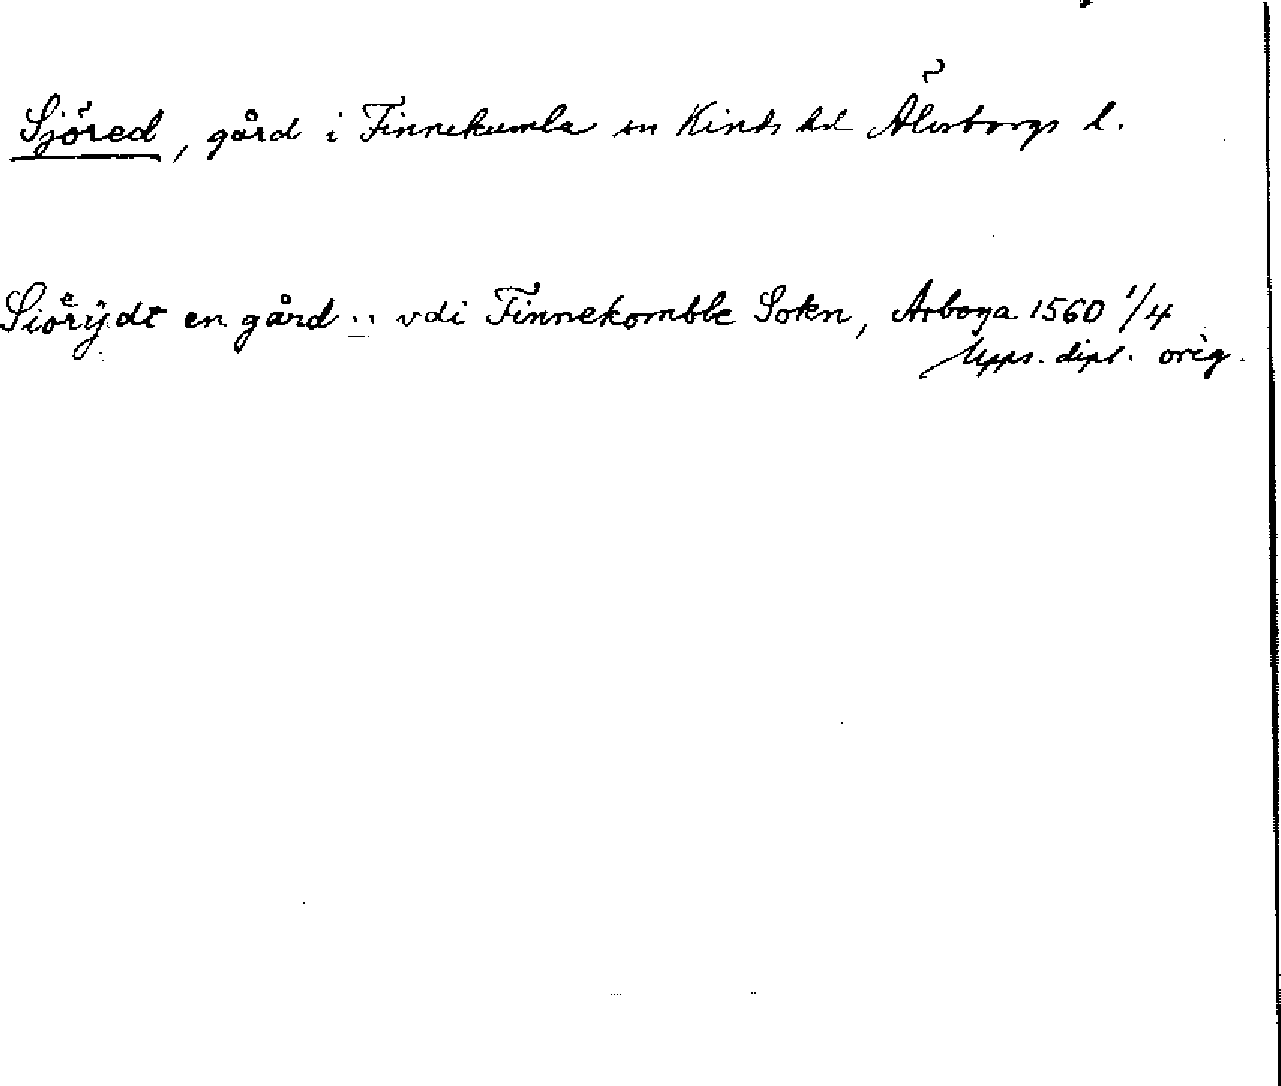 Sjöred, gård i Finnekumla sn Kinds hd Älvsborgs l.
Siörÿdt en gård .. vdi Finnekomble Sokn, Arboga 1560 1/4
Upps. dipl. orig.